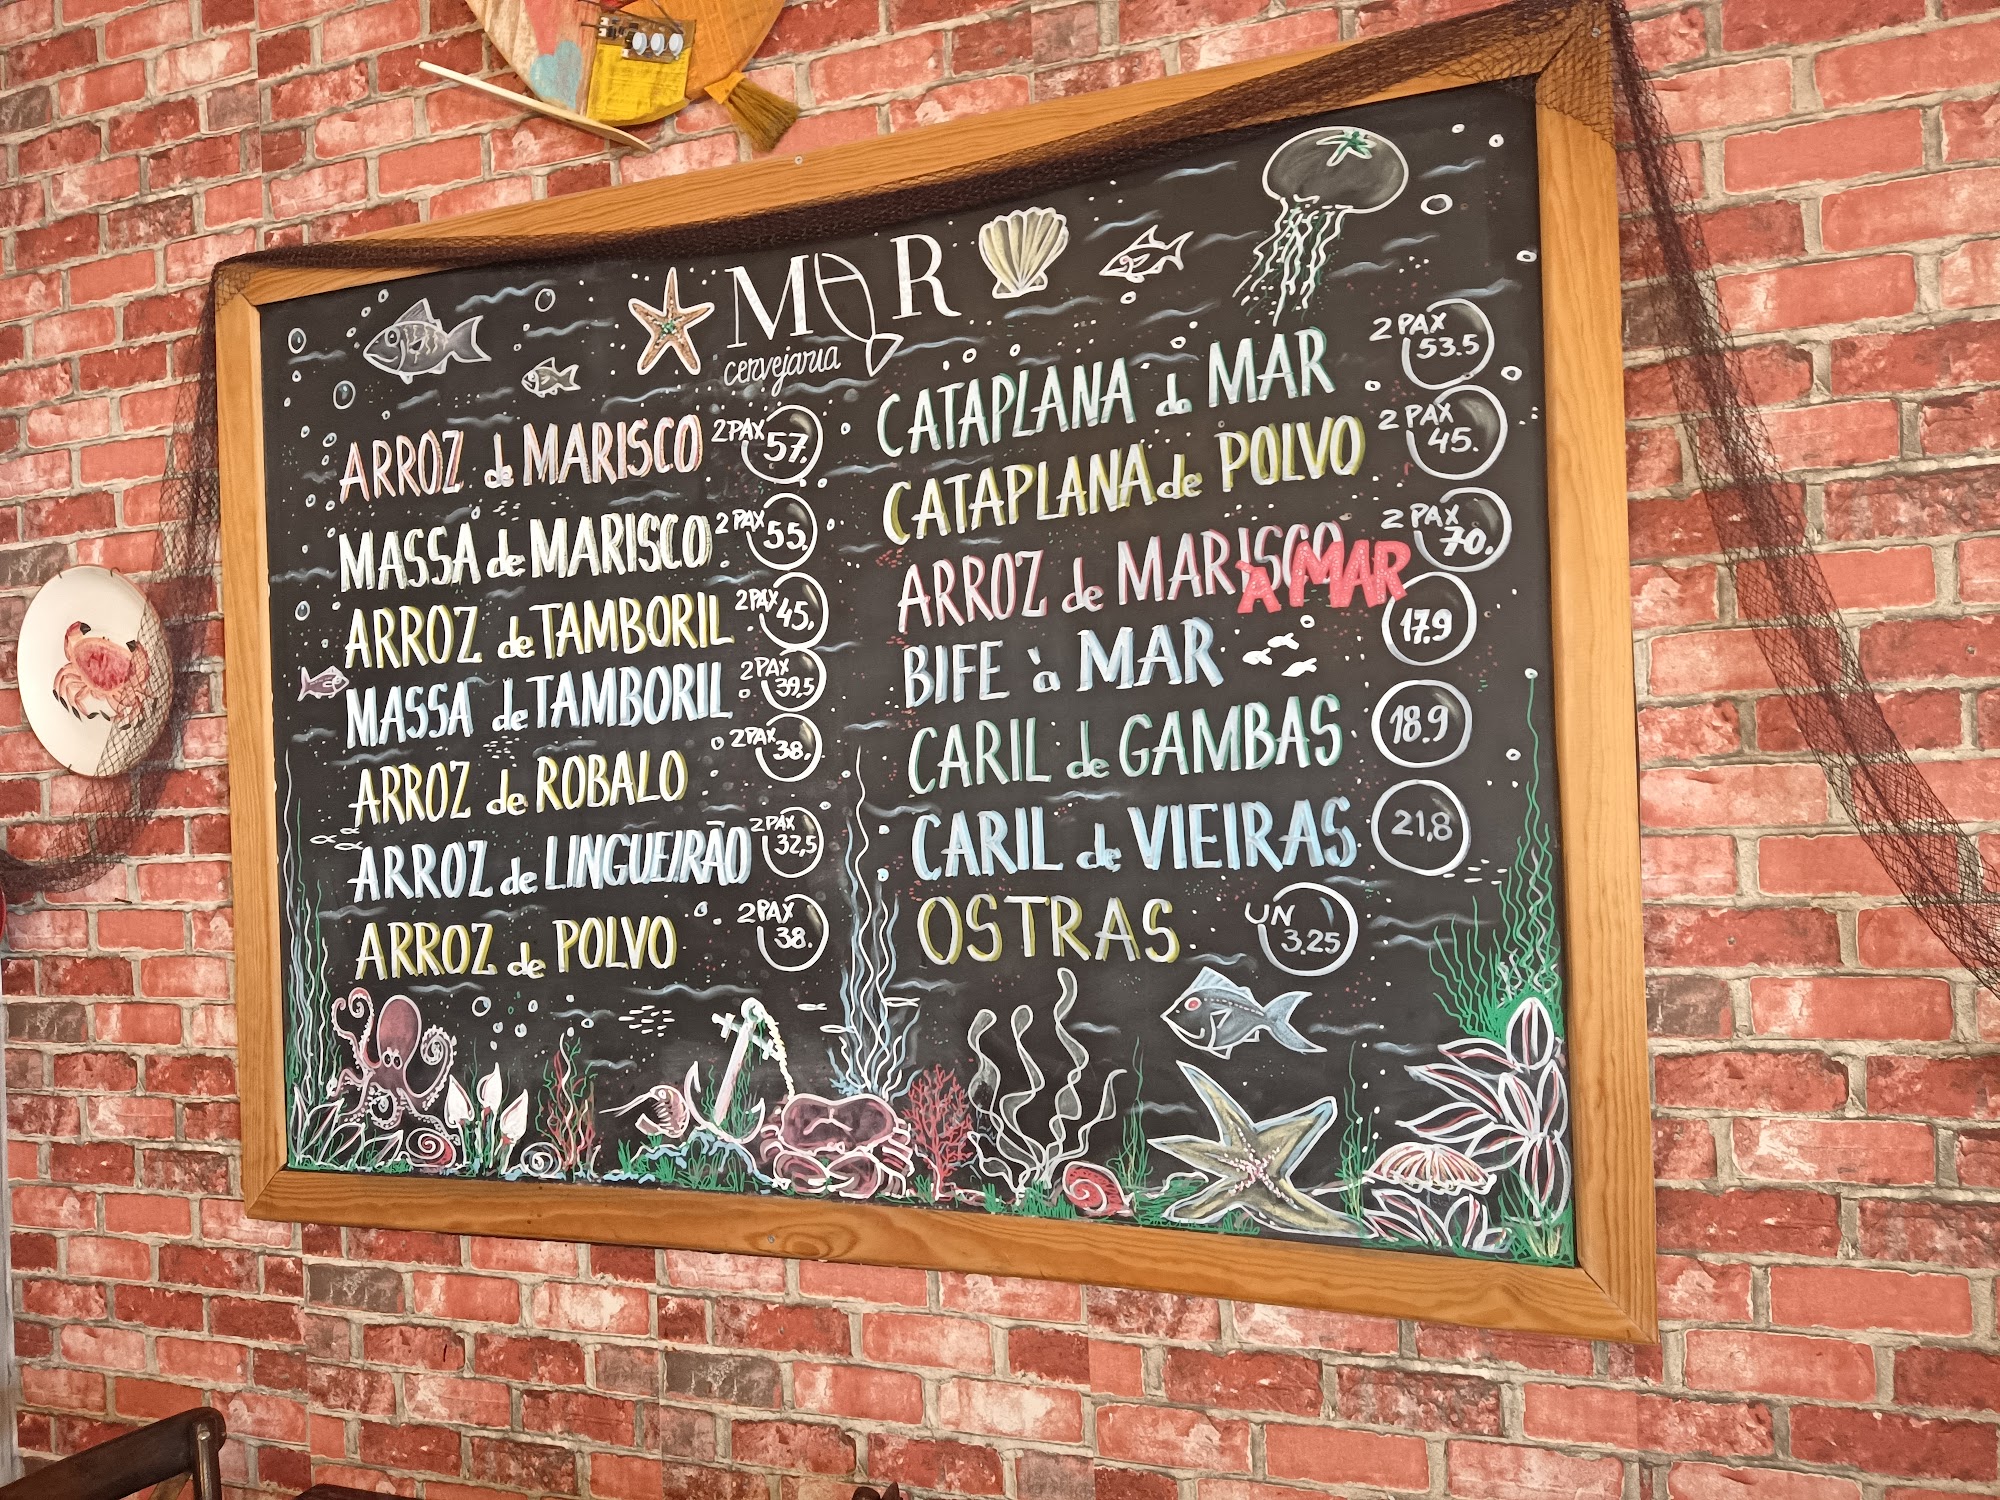 MAR
cervejaria
ARROZ de MARISCO 2 PAX 57.
MASSA de MARISCO 2 PAX 55.
ARROZ de TAMBORIL 2 PAX 45.
MASSA de TAMBORIL 2 PAX 39,5
ARROZ de ROBALO 2 PAX 38.
ARROZ de LINGUEIRÃO 2 PAX 32,5
ARROZ de POLVO 2 PAX 38.
CATAPLANA do MAR 2 PAX 53.5
CATAPLANA de POLVO 2 PAX 45.
ARROZ de MARISCO À MAR 2 PAX 70.
BIFE à MAR 17.9
CARIL de GAMBAS 18.9
CARIL de VIEIRAS 21,8
OSTRAS UN 3.25